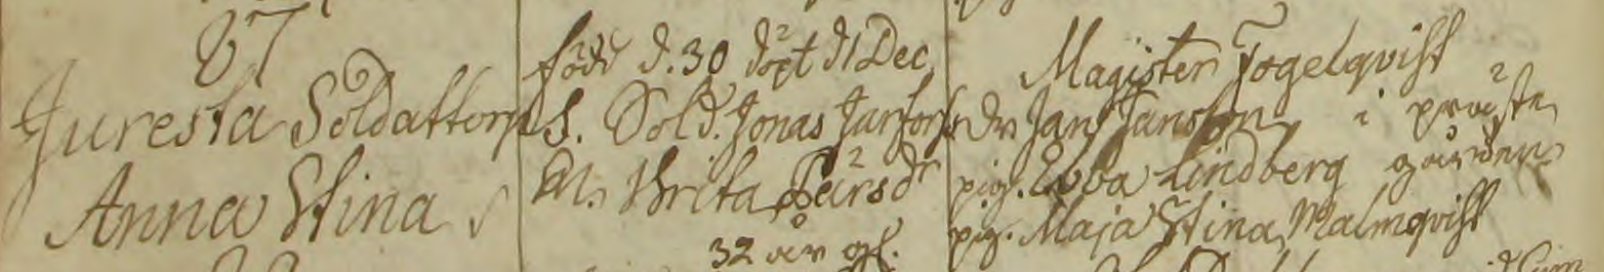 87
Juresta Soldattorp
Anna Stina
född d. 30 döpt d 1 Dec
S. Sold. Jonas Jurfors
M. Brita Pärsdr
32 år gl.
Magister Fogelqvist
Dr Jan Jansson i proste
pig. Ebba Lindberg gården
pig. Maja Stina Malmqvist